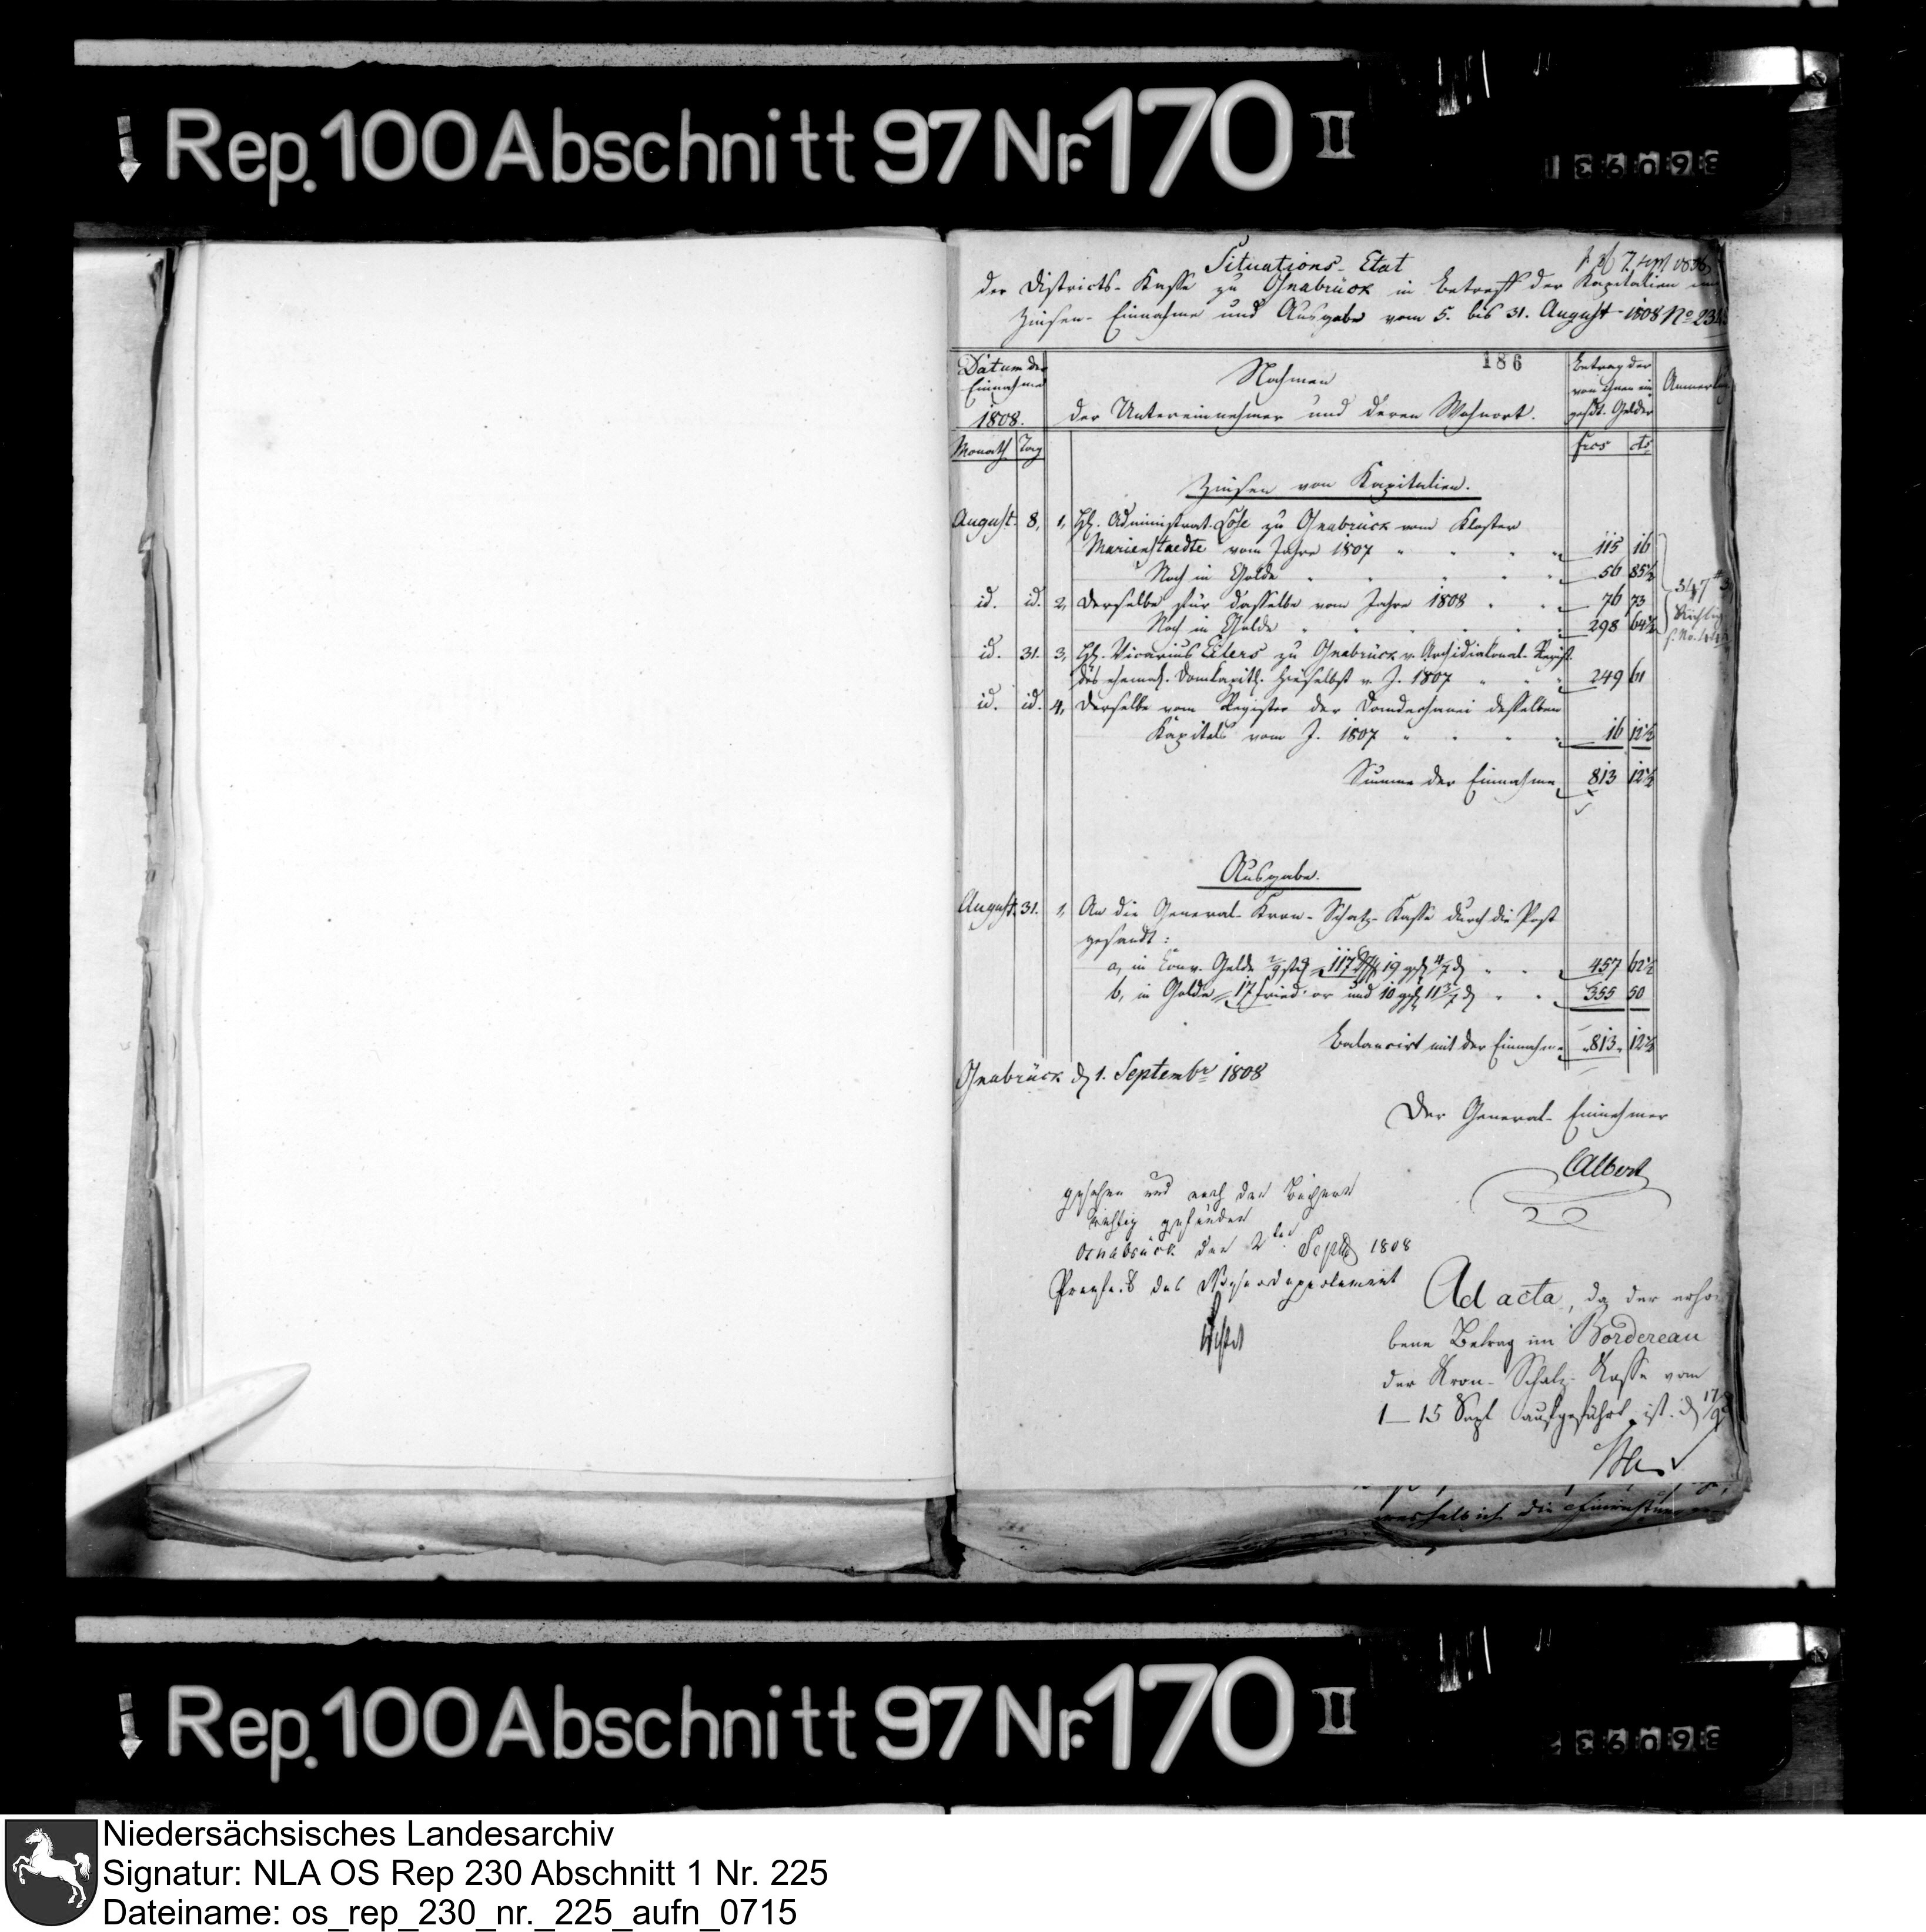 Rep. 100 Abschnitt 97 Nr. 170 II
Situations-Etat
der Districts-Kasse zu Osnabrück in Betreff der Kapitalien
Zinsen-Einnahme und Ausgabe vom 5. bis 31. August 1808 No 23
186
Datum der
Einnahme
1808.
Nahmen
der Untereinnehmer und deren Wohnort.
Betrag der
von ihnen ein
gesdt. Gelder
Monath Tag
frcs cts
Zinsen von Kapitalien.
August 8, 1, H. Administrat. Lose zu Osnabrück vom Kloster
Marienstaedte vom Jahre 1807 " " " " 115 16
Noch in Golde " " " " 56 85½
id. id. 2, Derselbe für dasselbe vom Jahre 1808 " " 76 73
Noch in Golde " " " " 298 64½
347
Richtig
id. 31. 3, H. Vicarius Eilers zu Osnabrück v. Archidiakonal-Regist.
des ehemal. Domkapitls. hieselbst v. J. 1807 " " " 249 61
id. id. 4, Derselbe vom Register der Domdechanei desselben
Kapitels vom J. 1807 " " " " 16 12½
Summe der Einnahme 813 12½
Ausgabe.
August. 31. 1, An die General-Kron-Schatz-Kasse durch die Post
gesandt:
a, in Conv. Gelde 117 19 457 62½
b, in Golde 17 Fried. or und 10 11 3/7 355 50
Balancirt mit der Einnahme 813 12½
Osnabrück d. 1. Septembr 1808
Der General-Einnehmer
CAlbert
gesehen und nach den Büchern
richtig gefunden
Osnabrück den 2ten Septb 1808
Praefect des Weserdepartement
Ad acta, da der erho
bene Betrag im Bordereau
der Kron-Schatz-Kasse vom
1–15 Sept aufgeführt ist. d 17/9
weshalb ich die Einrichtung
Rep. 100 Abschnitt 97 Nr. 170 II
Niedersächsisches Landesarchiv
Signatur: NLA OS Rep 230 Abschnitt 1 Nr. 225
Dateiname: os_rep_230_nr._225_aufn_0715